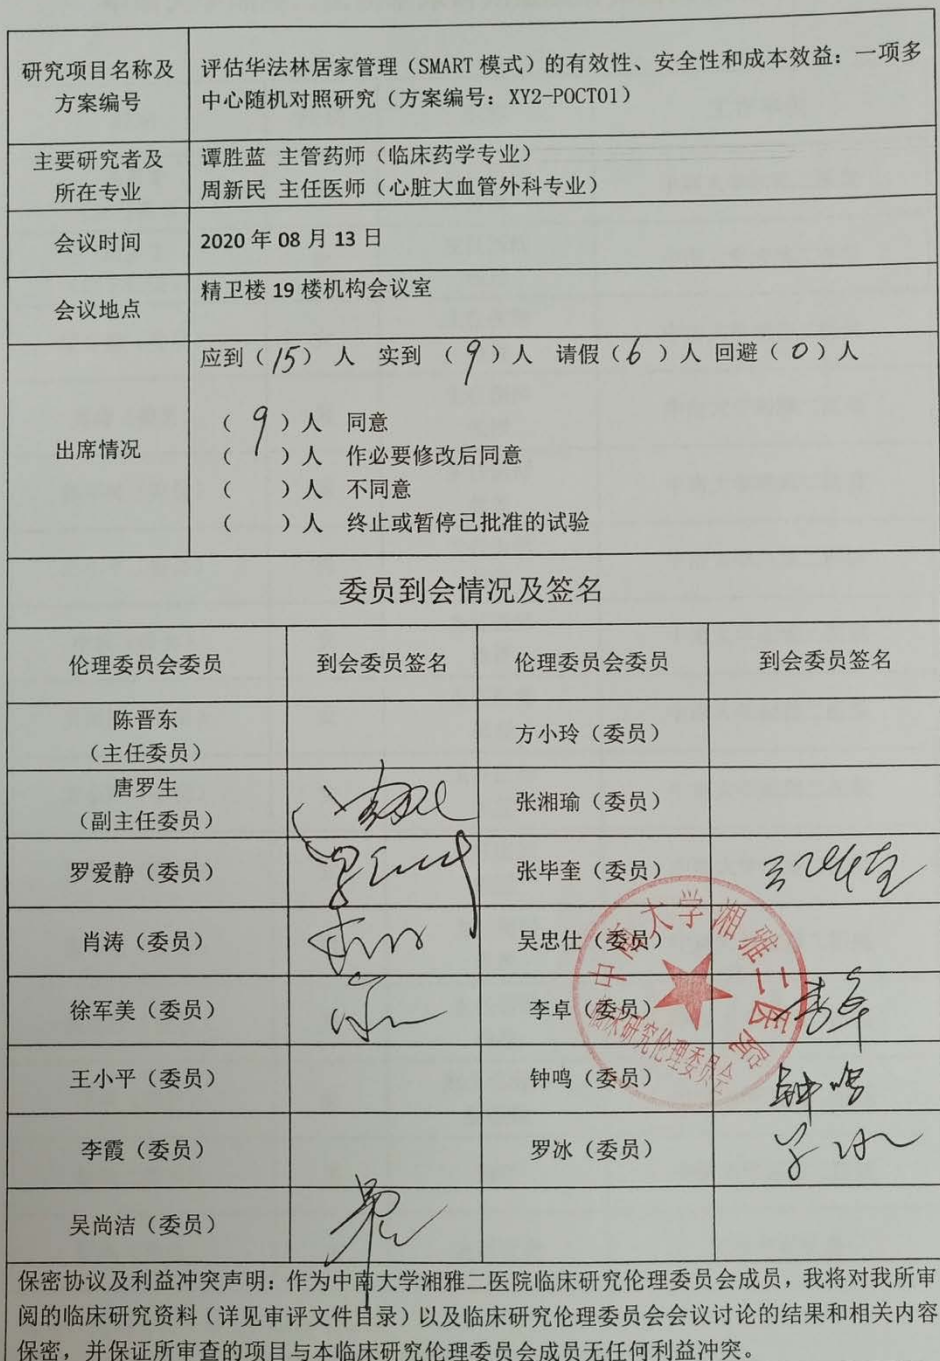 研究项目名称及
方案编号
评估华法林居家管理（SMART 模式）的有效性、安全性和成本效益：一项多
中心随机对照研究（方案编号：XY2-POCT01）
主要研究者及
所在专业
谭胜蓝 主管药师（临床药学专业）
周新民 主任医师（心脏大血管外科专业）
会议时间
2020 年 08 月 13 日
会议地点
精卫楼 19 楼机构会议室
出席情况
应到（15）人 实到（9）人 请假（6）人 回避（0）人
（9）人 同意
（ ）人 作必要修改后同意
（ ）人 不同意
（ ）人 终止或暂停已批准的试验
委员到会情况及签名
伦理委员会委员 到会委员签名 伦理委员会委员 到会委员签名
陈晋东
（主任委员）
方小玲（委员）
唐罗生
（副主任委员）
张湘瑜（委员）
罗爱静（委员）
张毕奎（委员） 张毕奎
肖涛（委员）
吴忠仕（委员）
徐军美（委员）
李卓（委员） 李卓
王小平（委员）
钟鸣（委员） 钟鸣
李霞（委员）
罗冰（委员） 罗冰
吴尚洁（委员）
中南大学湘雅二医院
临床研究伦理委员会
保密协议及利益冲突声明：作为中南大学湘雅二医院临床研究伦理委员会成员，我将对我所审
阅的临床研究资料（详见审评文件目录）以及临床研究伦理委员会会议讨论的结果和相关内容
保密，并保证所审查的项目与本临床研究伦理委员会成员无任何利益冲突。